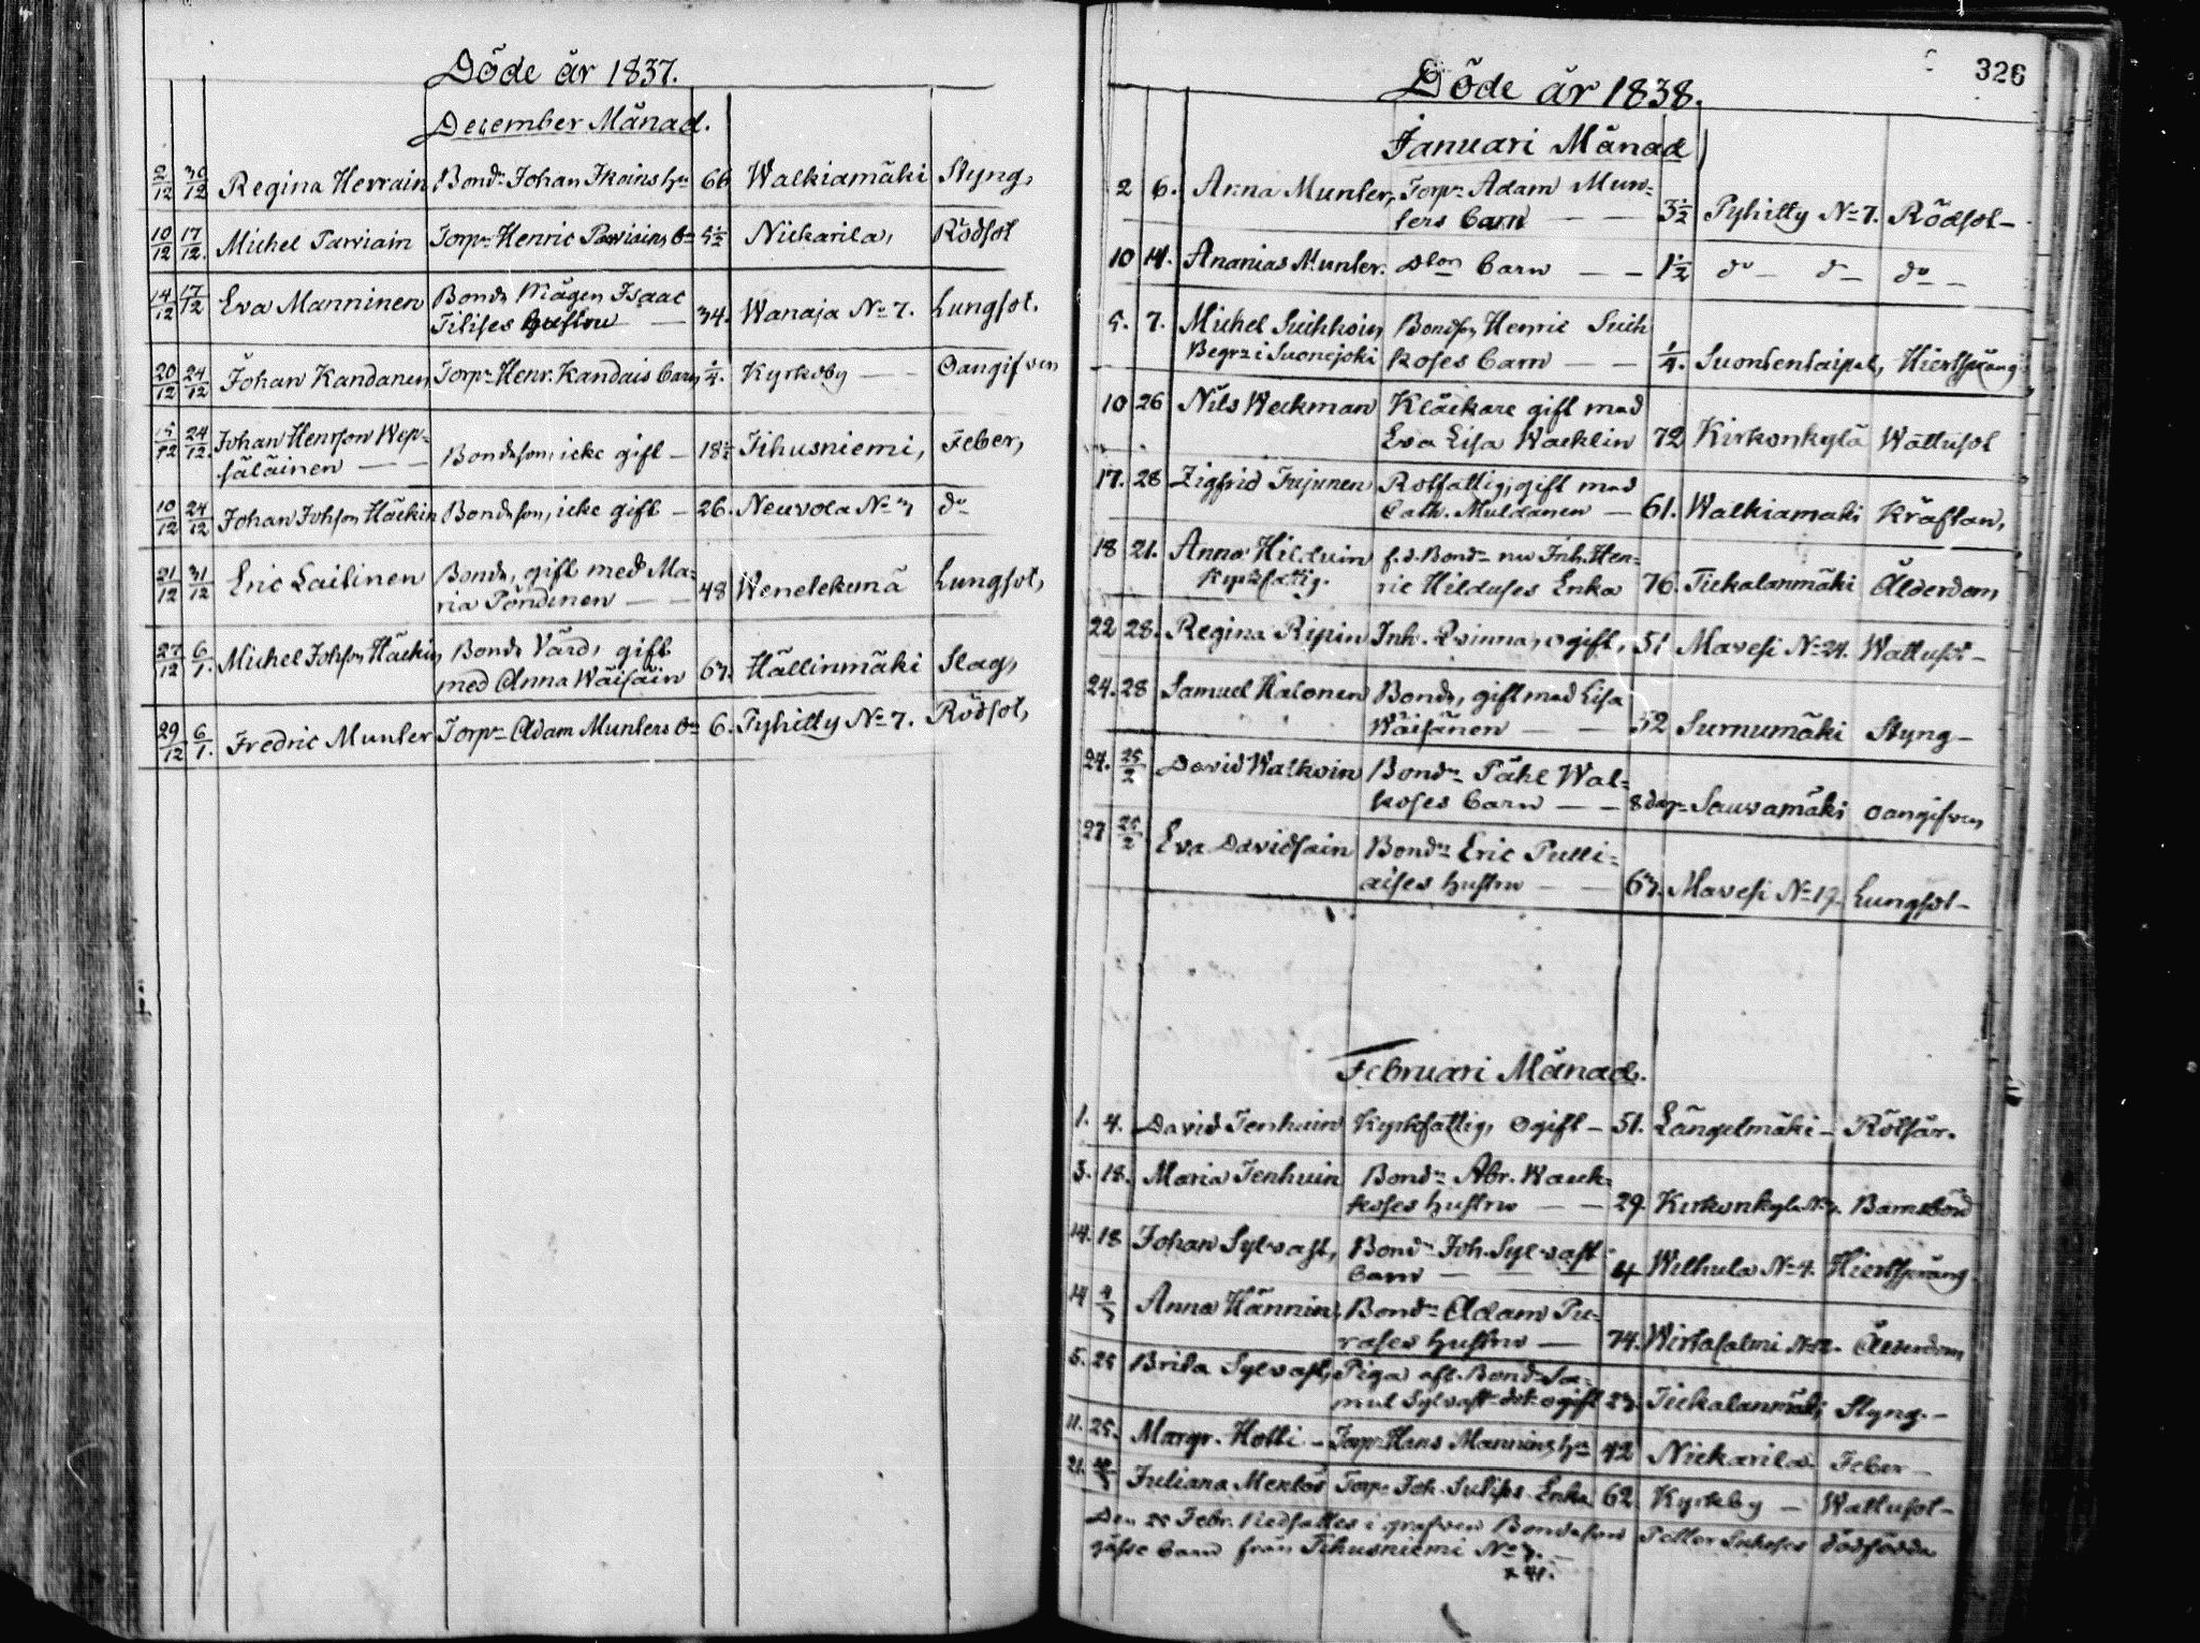 Döde år 1837.
December Månad.
2/12 30/12 Regina Herrain Bondn Johan Ikoins hu 66 Walkiamäki Styng,
10/12 17/12. Michel Parviain Torpn Henric Parviains bn 5½ Nickarila, Rödsot
14/12 17/12 Eva Manninen Bonds Mågen Isaac
Tilises hustru — 34. Wanaja No 7. Lungsot.
20/12 24/12 Johan Kandanen Torpn Henr. Kandais barn ¼. Kyrkoby — Oangifven
15/12 24/12. Johan Henrson Wep-
säläinen — — Bondeson, icke gift — 18½ Tihusniemi, Feber,
10/12 24/12 Johan Johson Häckin Bondeson, icke gift — 26. Neuvola No 3 do
21/12 31/12 Eric Laitinen Bonde, gift med Ma-
ria Pöndinen — — 48 Wenetekemä Lungsot,
27/12 6/1. Michel Johson Häckin Bonde Värd, gift
med Anna Wäisäin 63. Hällinmäki Slag,
29/12 6/1. Fredric Munter Torpn Adam Munters bn 6. Pyhitty No 7. Rödsot,
326
Döde år 1838.
Januari Månad
2 6. Anna Munter, Torpn Adam Mun-
ters barn — — 3½ Pyhitty No 7. Rödsot —
10 14. Ananias Munter. Dton barn — — 1½ do — do — do —
5. 7. Michel Suihkoin, Bondson Henric Suih
Begr: i Suonejoki koses barn — — ¼. Suontentaipal, Hiertsprång
10 26 Nils Weckman Kläckare gift med
Eva Lisa Wacklin 72 Kirkonkylä Wattusot
17. 28 Zigfrid Jujunen Rotfattig, gift med
Cath. Muldanen — 61. Walkiamäki Kräftan,
18 21. Anna Hilduin f.d. Bondn nu Inh. Hen-
Kyrkfattig. ric Hilduses Enka 76. Tiekalanmäki Ålderdom,
22 28. Regina Ripin Inh. Qvinna, ogift, 51 Mavesi No 24. Wattusot —
24. 28 Samuel Halonen Bonde, gift med Lisa
Wäisänen — — 52 Surnumäki Styng —
24. 25/2 David Walkoin Bondn Påhl Wal-
koses barn — — 8 dagr Sauvamäki oangifven
27 25/2 Eva Davidsain Bondn Eric Pulli-
aises hustru — — 63. Mavesi No 17. Lungsot —
Februari Månad.
1. 4. David Tenhuin Kyrkfattig, Ogift — 51. Längelmäki — Rötsår.
3. 18. Maria Tenhuin Bondn Abr. Wauh-
koses hustru — — 29. Kirkonkylä Barnsbörd
14. 18 Johan Sylvast, Bondn Joh. Sylvast
barn — — — 4 Wilhula No 4. Hiertsprång
14 4/3 Anna Hännin, Bondn Adam Pu-
rases hustru — 74. Wirtasalmi Ålderdom
5. 25 Brita Sylvast, Piga afl. Bond Sa-
muel Sylvast dotr ogift 23. Tiekalanmäki, Styng. —
11. 25. Margr. Hotti — Torpn Hans Mannins hu 42 Nickarila Feber —
21. Juliana Menlös Torpn Joh. Enka 62 Kyrkby — Wattusot —
Den 25 Febr. Nedsattes i grafven Bondeson Petter dödfödda
gåsse barn från Tihusniemi No 3. —